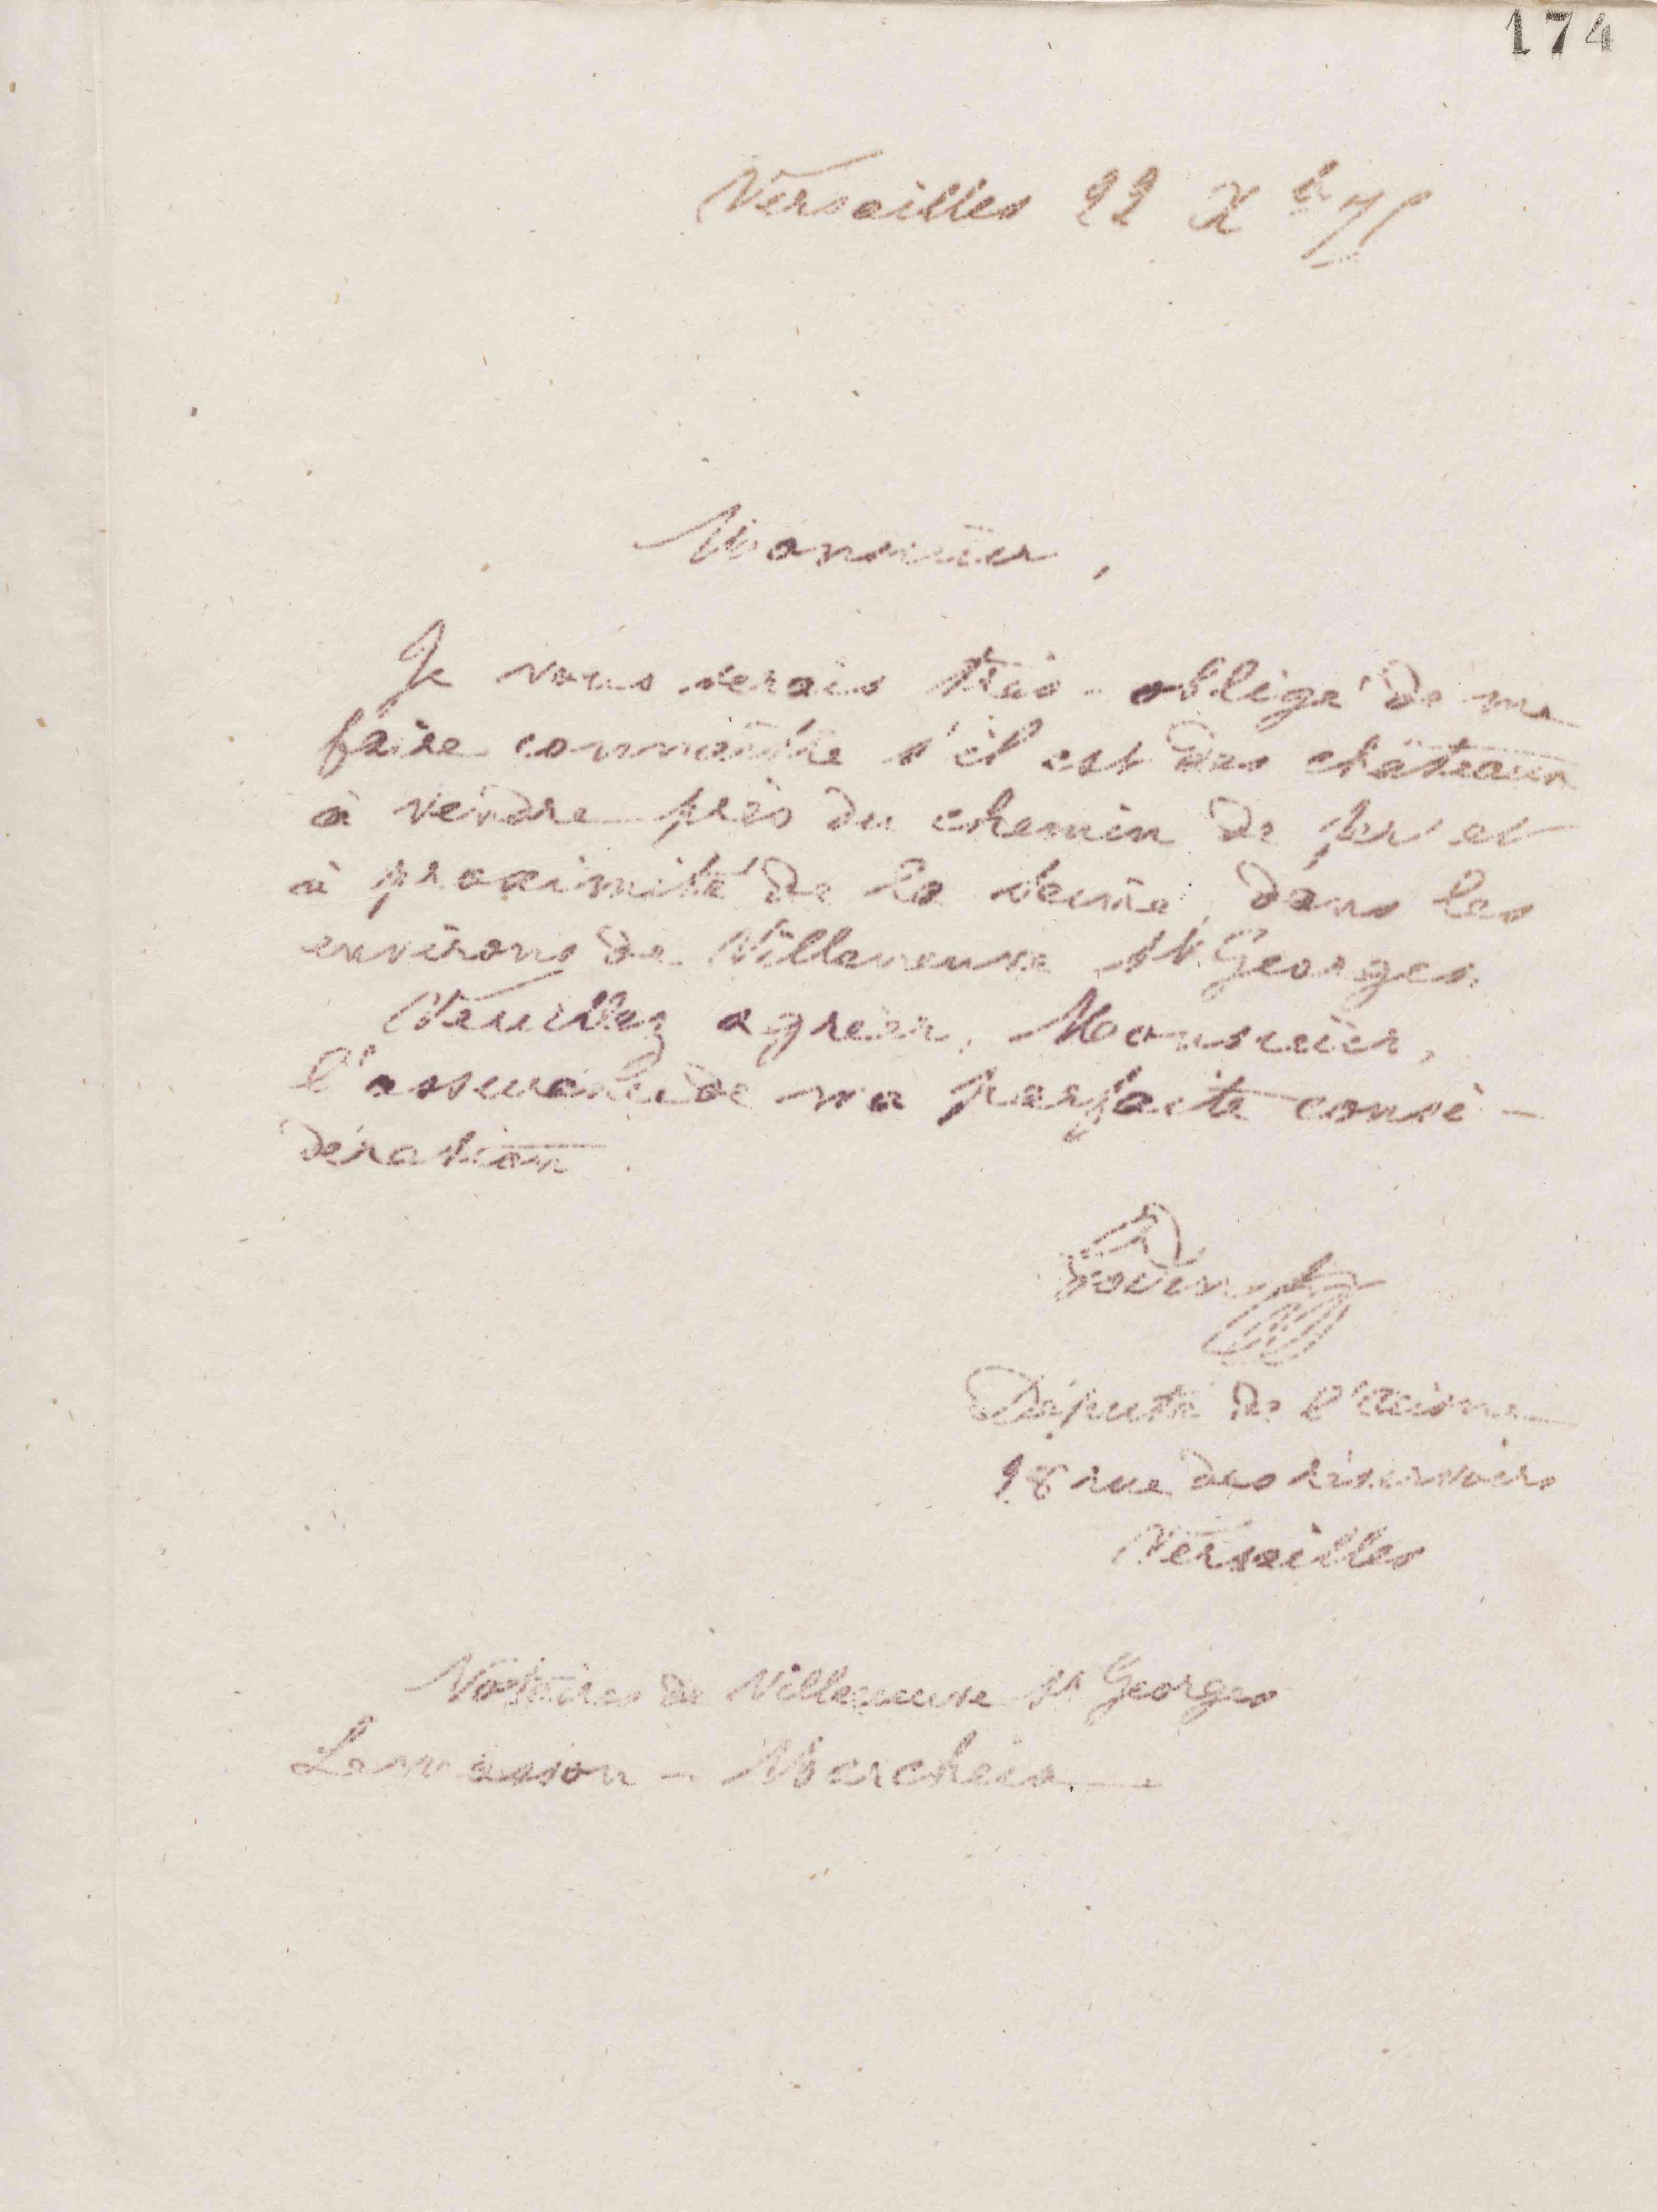 174
Versailles 22 Xbre 75
Monsieur,
Je vous serais très-obligé de me
faire connaître s'il est des châteaux
à vendre près du chemin de fer et
à proximité de la Seine, dans les
environs de Villeneuve St Georges.
Veuillez agréer, Monsieur,
l'assurance de ma parfaite consi-
dération.
Godin
Député de l'Aisne
28 rue des réservoirs
Versailles
Notaires de Villeneuve St Georges
Lemasson -